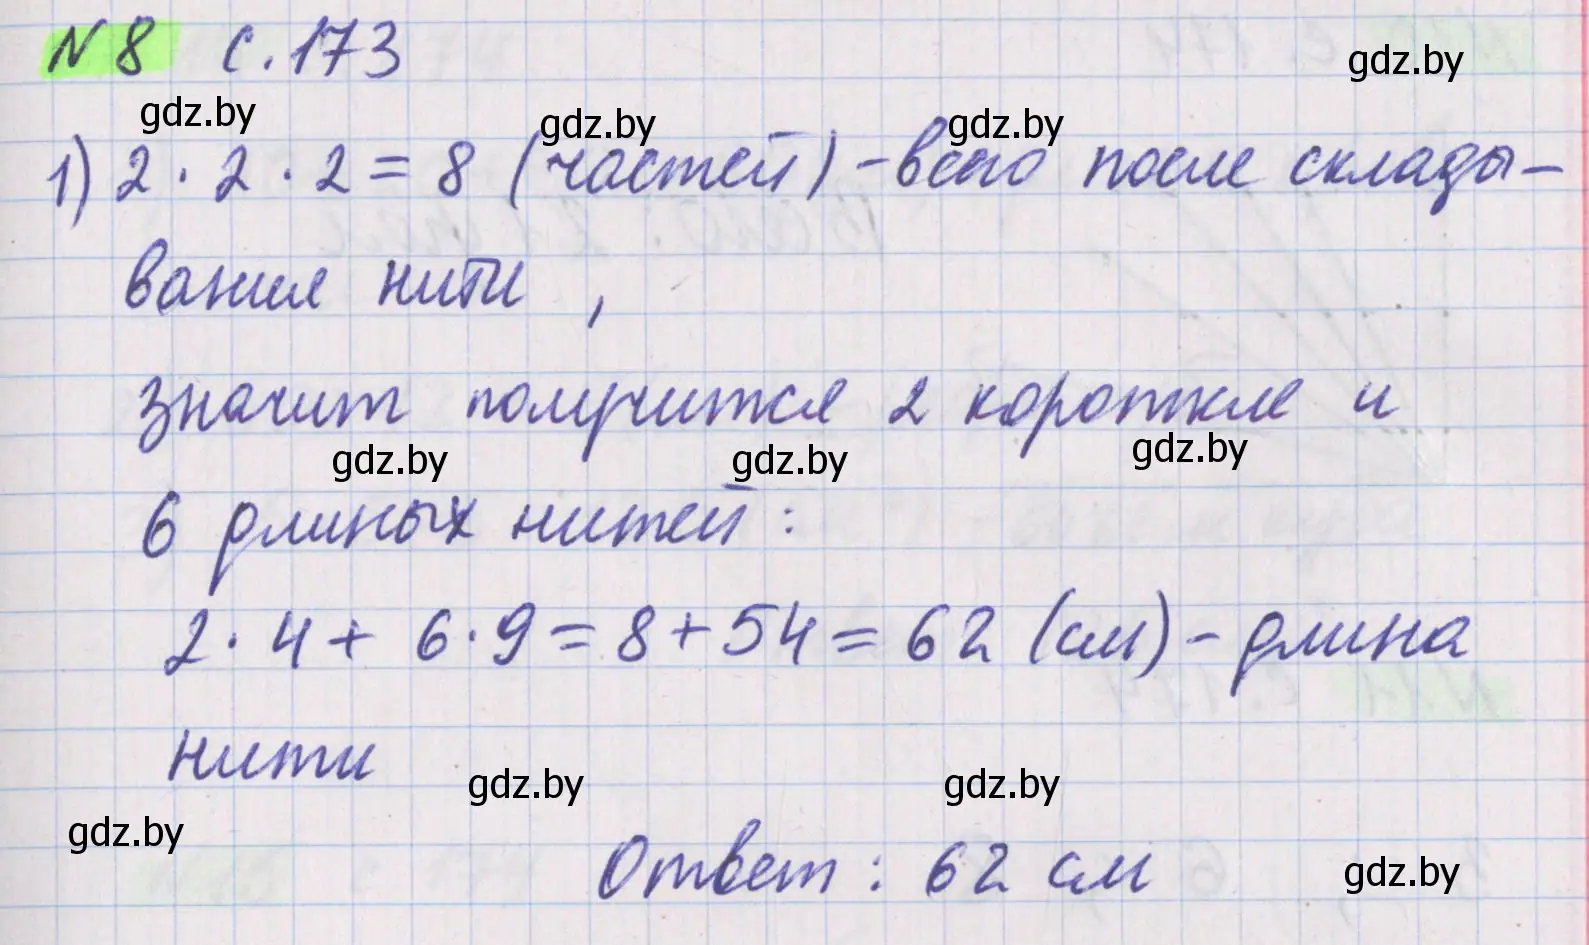 N 8 с. 173
gdz.by
gdz.by gdz.by gdz.by
1) 2 · 2 · 2 = 8 (частей) - всего после склады-
вания нити ,
значит получится 2 короткие и
gdz.by gdz.by gdz.by
6 длиных нитей :
2 · 4 + 6 · 9 = 8 + 54 = 62 (см) - длина
нити
gdz.by gdz.by
gdz.by
Ответ : 62 см
gdz.by